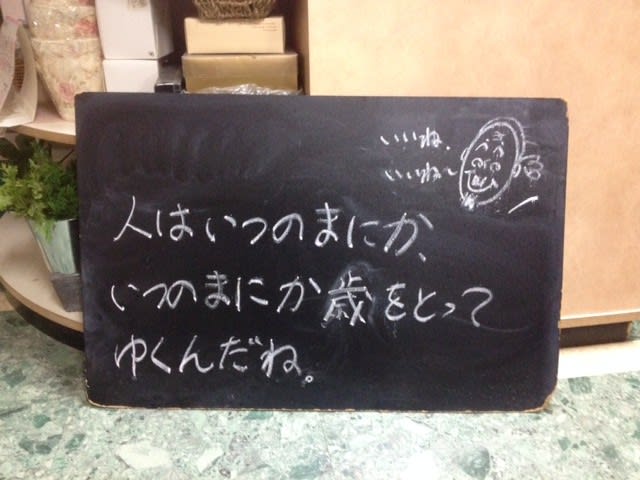 いいね、
いいね〜
人はいつのまにか、
いつのまにか歳をとって
ゆくんだね。